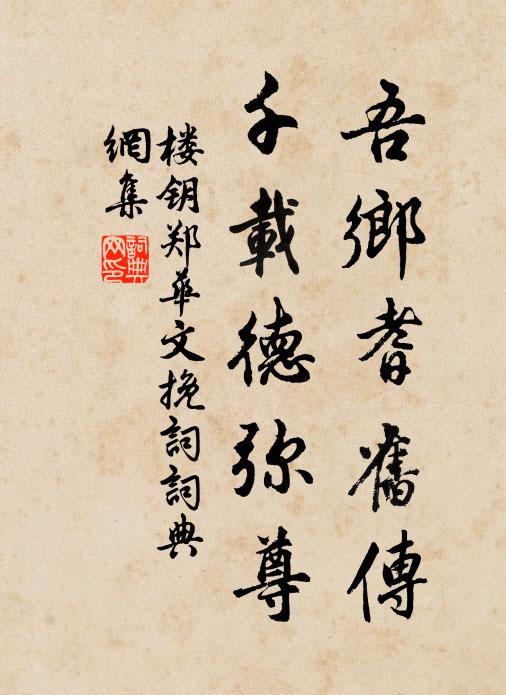 吾鄉耆舊傳
千載德弥尊
楼钥郑華文挽詞詞典
網集
詞典
网印